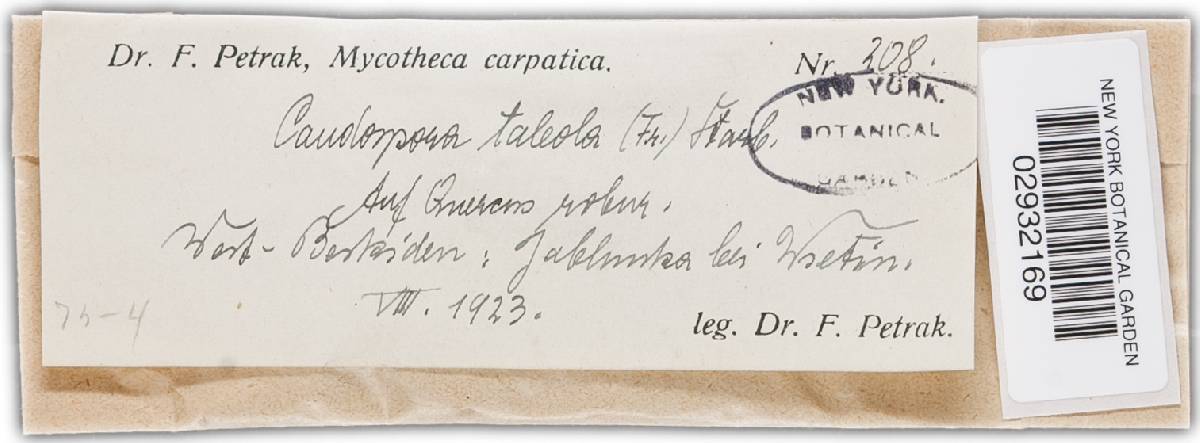 Dr. F. Petrak, Mycotheca carpatica. Nr. 208.
NEW YORK.
BOTANICAL
GARDEN
Caudospora taleola (Fr.) Starb.
Auf Quercus robur.
West-Beskiden: Jablunka bei Wsetin.
VIII. 1923.
75-4
leg. Dr. F. Petrak.
NEW YORK BOTANICAL GARDEN
02932169